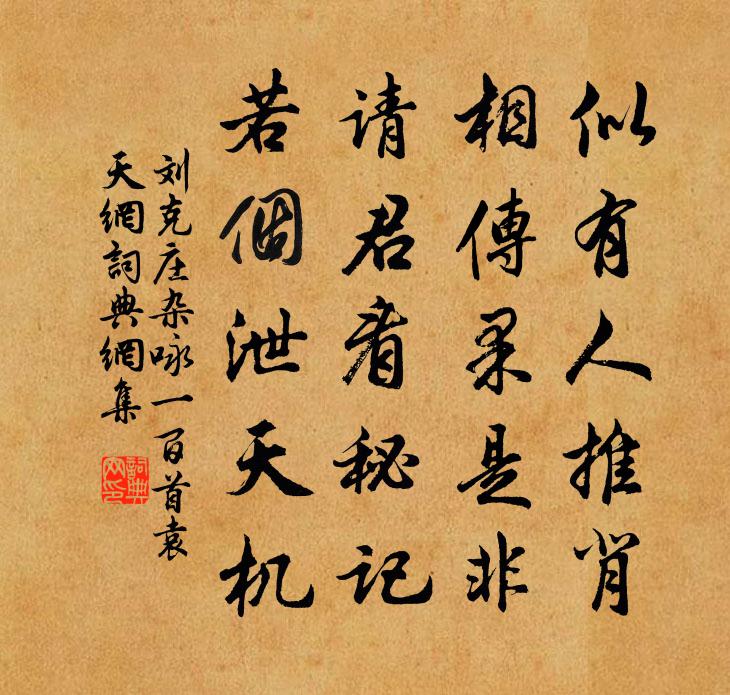 似有人推背
相傳果是非
请君看秘记
若個泄天机
刘克庄杂咏一百首袁
天網詞典網集
詞典网印